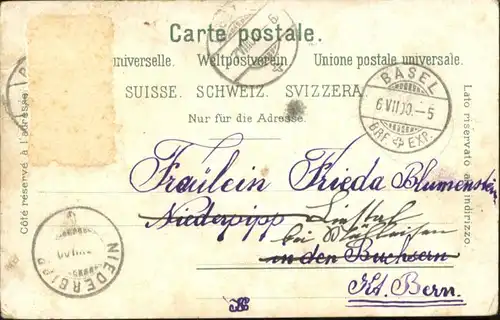 Carte postale.
universelle. Weltpostverein Unione postale universale.
SUISSE. SCHWEIZ. SVIZZERA
Nur für die Adresse
Côté réservé à l'adresse
Lato riservato all'indirizzo.
BASEL
6 VII 00.-5
BRF. EXP.
Fräulein Frieda Blumenstein
Niederpipp Liestal
bei
in den Buchsern
Kt. Bern.
NIEDERBI